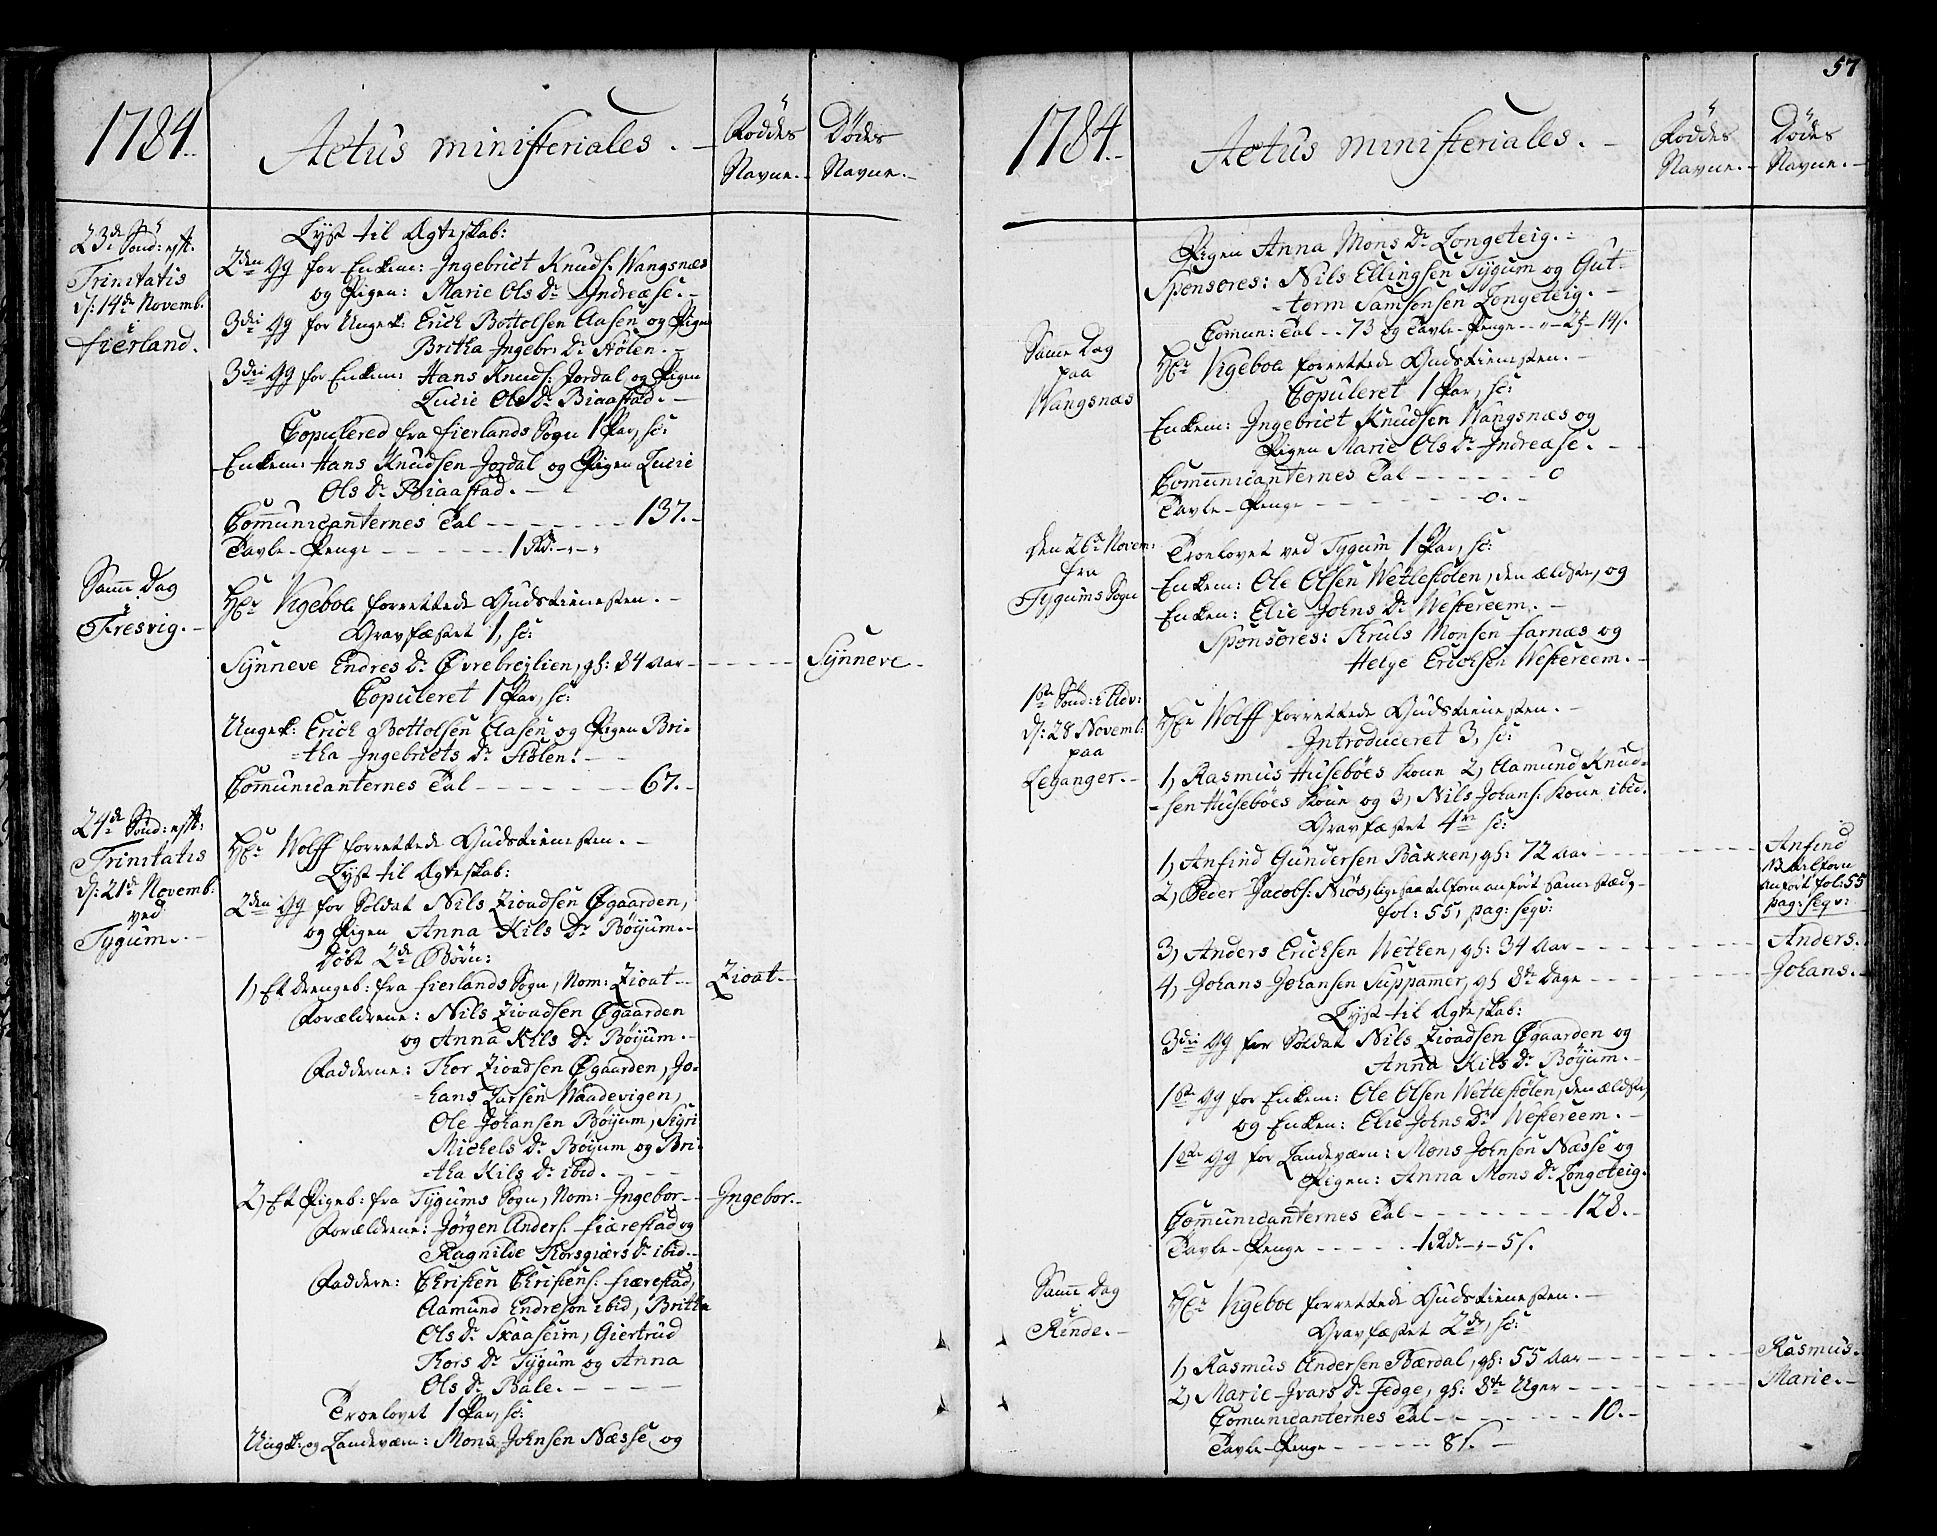 1784.
Actus ministeriales.
Föddes Navne.
Dödes Navne.
23de Sönd: eft. Trinitatis
d: 14de Novemb.
i Fierland.
Lyst til Ægteskab:
2den Gg for Enkem: Ingebrict Knuds. Wangsnæs
og Pigen: Marie Ols Dr. Indreæse.
3die Gg for Ungek: Erich Bottolsen Aasen og Pigen
Britha Ingebr: Dr. Stölen.
3die Gg for Enkem: Hans Knuds: Jordal og Pigen
Lucie Ols Dr. Biaastad.
Copulered fra Fierlands Sogn 1 Par, sc:
Enkem: Hans Knudsen Jordal og Pigen Lucie
Ols Dr. Biaastad.
Communicanternes Tal - - - 137.
Tavle-Penge - - - 1 Rd: - „ - „
Samme Dag
i Fresvig.
Hr. Vigeboe forrettede Gudstienesten.
Gravfæstet 1, sc:
Synneve Endres Dr. Øvrebreilien, gl: 84 Aar - - - Synneve.
Copuleret 1 Par, sc:
Ungek: Erich Bottolsen Aasen og Pigen Bri-
=tha Ingebricts Dr. Stölen.
Communicanternes Tal - - - 67.
24de Sönd: eft: Trinitatis
d: 21de Novemb:
ved Tygum.
Hr. Wolff forrettede Gudstienesten.
Lyst til Ægteskab:
2den Gg for Soldat Nils Zioadsen Øgaarden,
og Pigen Anna Kils Dr. Böyum.
Döbt 2de Börn:
1) Et Drengeb: fra Fierlands Sogn, Nom: Zioat - - Zioat.
Forældrene: Nils Zioadsen Øgaarden
og Anna Kils Dr. Böyum.
Fadderne: Thor Zioadsen Øgaarden, Jo-
=hans Larsen Naadevigen,
Ole Johansen Böyum, Sigri
Michels Dr. Böyum og Bri-
=tha Kils Dr. ibid.
2) Et Pigeb: fra Tygums Sogn, Nom: Ingebor - - Ingebor.
Forældrene: Jørgen Anders. Fiærestad og
Ragnilde Thorsgiærs Dr. ibid.
Faddere: Christen Christens. Fiærestad,
Aamund Endreson ibid, Britha
Ols Dr. Skaaseim, Giertrud
Thors Dr. Tygum og Anna
Ols Dr. Bale.
Troelovet 1 Par, sc:
Ungk: og Landeværn: Mons Johnsen Næsse og
57
1784.
Actus ministeriales.
Föddes Navne.
Dödes Navne.
Pigen Anna Mons Dr. Longeteig.
Sponsores: Nils Ellingsen Tygum og Gut-
=torm Samsonsen Longeteig.
Comun: Tal - - 73 og Tavle-Penge - - „ - 2 - 14 s.
Samme Dag
paa
Wangsnæs
Hr. Vigeboe forrettede Gudstienesten.
Copuleret 1 Par, sc:
Enkem: Ingebrict Knudsen Wangsnæs og
Pigen Marie Ols Dr. Indreæse.
Communicanternes Tal - - - 0
Tavle-Penge - - - 0.
den 26de Novem:
fra
Tygums Sogn
Troelovet ved Tygum 1 Par, sc:
Enkem: Ole Olsen Wetlestölen, den ældste, og
Enken: Elie Johns Dr. Westereem.
Sponsores: Truls Monsen Farnæs og
Helge Erichsen Westereem.
1ste Sönd: i Adv:
d: 28 Novemb:
paa
Leganger.
Hr. Wolff forrettede Gudstienesten.
Introduceret 3, sc:
1) Rasmus Huseböes Kone 2) Aamund Knud-
=sen Huseböes Kone og 3) Nils Johans. Kone ibid.
Gravfæstet 4re sc:
1) Anfind Gundersen Bakken, gl: 72 Aar - - - Anfind
2) Peder Jacobs: Niös, ligesaa tilforn anfört samme stædz
fol: 55, pag: seqv:
NB tilforn
anfört fol: 55
pag: seqv:
3) Anders Erichsen Wethen, gl: 34 Aar - - - Anders.
4) Johans Johansen Suppamer, gl 8te Dage - - - Johans.
Lyst til Ægteskab:
3die Gg for Soldat Nils Zioadsen Øgaarden og
Anna Kils Dr. Böyum.
1ste Gg for Enkem: Ole Olsen Wetlestölen, den ældste,
og Enken: Elie Johns Dr. Westereem.
1ste Gg for Landeværn: Mons Johnsen Næsse og
Pigen: Anna Mons Dr. Longeteig.
Communicanternes Tal - - - 128.
Tavle-Penge - - - 1 Rd - „ - 5 s.
Samme Dag
i Rinde.
Hr. Vigeboe forrettede Gudstienesten.
Gravfæstet 2de, sc:
1) Rasmus Andersen Bærdal, gl: 55 Aar - - - Rasmus.
2) Marie Ivars Dr. Fedge, gl: 8te Uger - - - Marie.
Comunicanternes Tal - - - 10.
Tavle-Penge - - - 8 s.